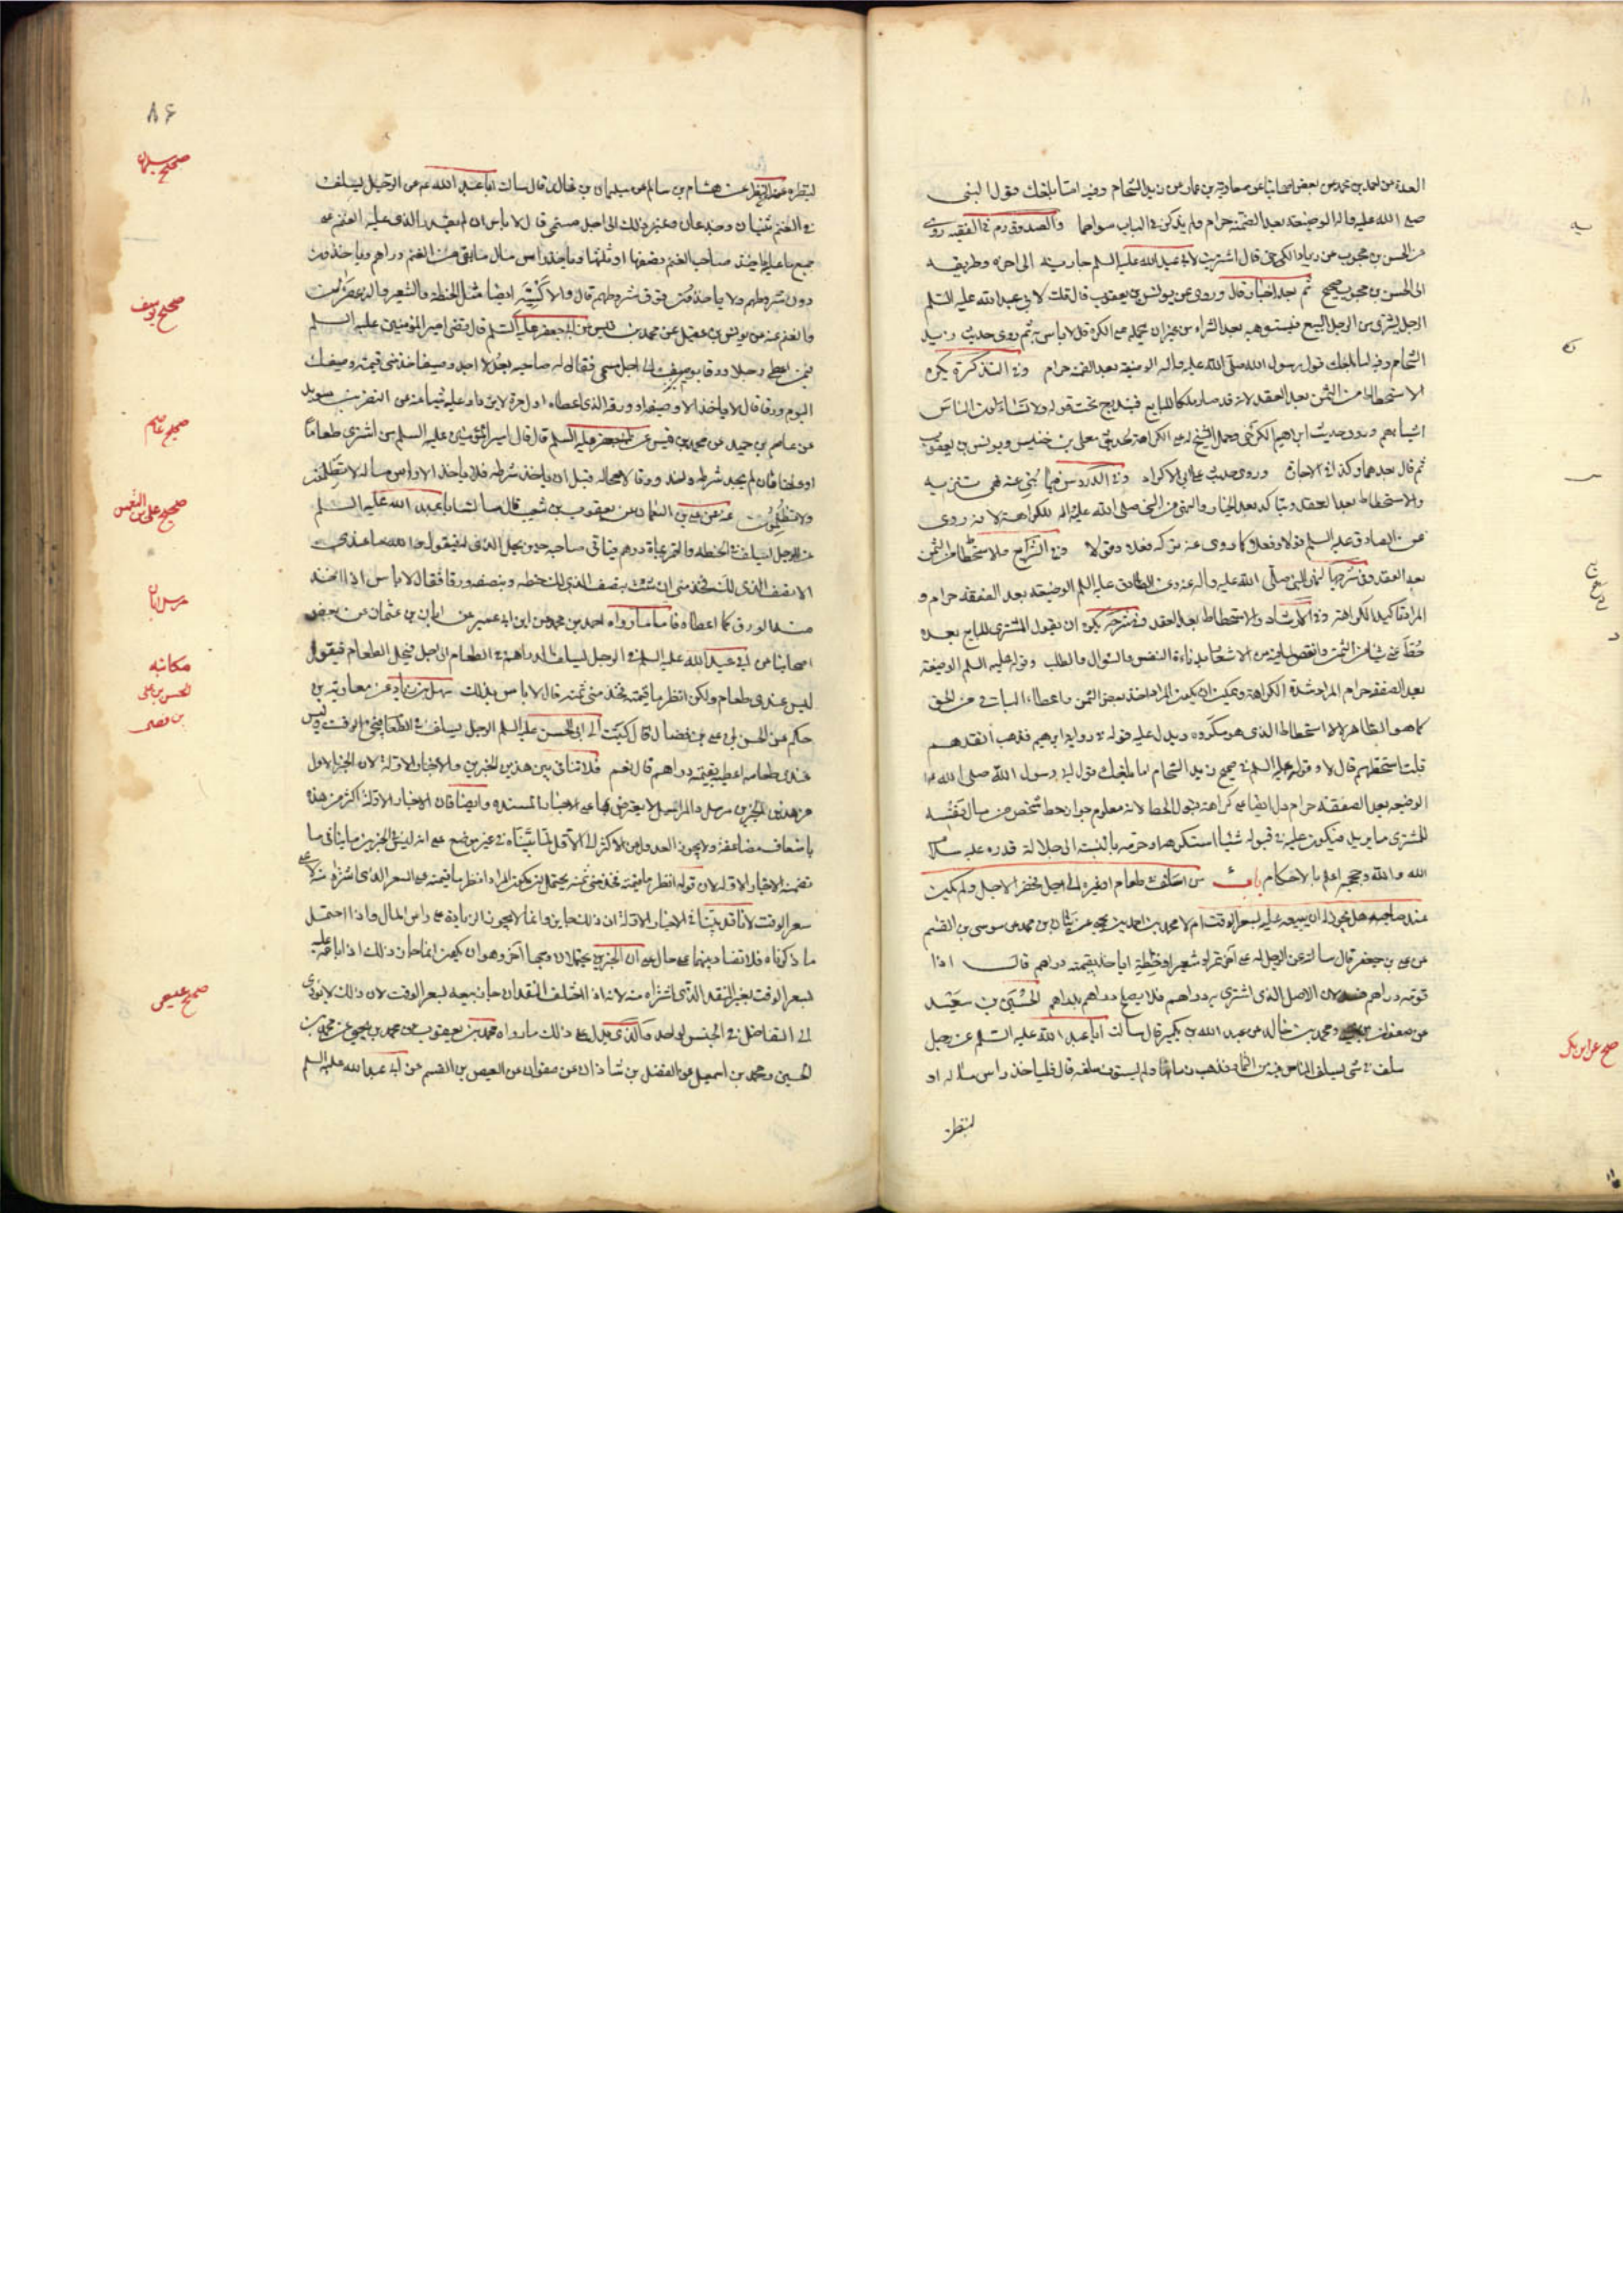 العدة عن احمد بن محمد عن بعض اصحابنا عن معاوية بن عمار عن زيد الشحام وفيه اما بلغك قول النبى
صلى الله عليه واله الوضيعة بعد الضمنة حرام ولم يذكر فى الباب سواهما والصدوق ره فى الفقيه روى
عن الحسن بن محبوب عن قال اشتريت لابى عبد الله عليه السلم جارية الى اخره وطريقه
الى الحسن بن محبوب صحيح ثم بعد اخبار قال وروى عن يونس بن يعقوب قال قلت لابى عبد الله عليه السلم
الرجل يشترى من الرجل البيع فيستوهبه بعد الشراء من غير ان يحمله على الكره قال لا باس به ثم روى حديث زيد
الشحام وفيه اما بلغك قول رسول الله صلى الله عليه واله الوضيعة بعد الضمنة حرام وفى التذكرة يكره
الاستحطاط من الثمن بعد العقد لانه قد صار ملكا للبايع فيندرج تحت قوله ولا الناس
اشياءهم وورد حديث ابراهيم الكرخى وحمل الشيخ له على الكراهة لحديثى معلى بن خنيس ويونس بن يعقوب
ثم قال بعدهما وكذا فى الاجارة وروى حديث على ابى الاكراد وفى الدروس فيما نهى عنه نهى تنزيه
والاستحطاط بعد العقد ويتاكد بعد الخيار والنهى من النبى صلى الله عليه واله للكراهة لانه روى
عن الصادق عليه السلم قولا وفعلا كما روى عنه تركه فعلا وقولا وفى الشرايع والاستحطاط من الثمن
بعد العقد وفى شرحها لنهى النبى صلى الله عليه واله عنه وعن الصادق عليه السلم الوضيعة بعد الصفقة حرام و
المراد تاكيد الكراهة وفى الارشاد والاستحطاط بعد العقد وفى شرحه يكره ان يقول المشترى للبايع بعده
حط عنى شيئا من الثمن من الاشعار بدناءة النفس والسؤال والطلب وقوله عليه السلم الوضيعة
بعد الصفقة حرام المراد شدة الكراهة ويمكن ان يكون المراد اخذ بعض الثمن واعطاء الباقى من الحق
كما هو الظاهر لا الاستحطاط الذى هو مكروه ويدل عليه قوله فى رواية ابرهيم فذهب انقدهم
قلت استحطهم قال لا وقوله عليه السلم فى صحيح زيد الشحام اما بلغك قول رسول الله صلى الله عليه
الوضيعة بعد الصفقة حرام دل ايضا على كراهة قبول الحط لانه معلوم جواز حط شخص من مال نفسه
للمشترى ما يريد فيكون عليه فى قبوله شيئا استكرهه او حرمه بالنسبة الى جلالة قدره عليه سلام
الله والله وحججه اعلم بالاحكام باب من اسلف فى طعام او غيره الى اجل فحضر الاجل ولم يكن
عند صاحبه هل يجوز له ان يبيعه عليه بسعر الوقت ام لا محمد بن احمد بن يحيى عن بنان بن محمد عن موسى بن القسم
عن على بن جعفر قال سالته عن الرجل له على اخر تمر او شعير او حنطة اياخذ بقيمته دراهم قال اذا
قومه دراهم فسد لان الاصل الذى اشترى به دراهم فلا يصلح دراهم بدراهم الحسين بن سعيد
عن صفوان ومحمد بن خالد عن عبد الله بن بكير قال سالت ابا عبد الله عليه السلم عن رجل
سلف فى شى يسلف الناس فيه من الثمار فذهب زمانها ولم يستوف سلفه قال فلياخذ راس ماله او
لينظره
صح عن ابن بكير
٨٦
لينظره عنه عن النضر عن هشام بن سالم عن سليمان بن خالد قال سالت ابا عبد الله ع عن الرجل يسلف
فى الغنم ثنيان وجذعان وغير ذلك الى اجل مسمى قال لا باس ان لم يقدر الذى عليه الغنم على
جميع ما عليه ياخذ صاحب الغنم نصفها او ثلثها وياخذ راس مال ما بقى من الغنم دراهم وياخذون
دون شروطهم ولا ياخذون فوق شروطهم قال والاكسية ايضا مثل الحنطة والشعير والزعفران
والغنم عنه عن يوسف بن عقيل عن محمد بن قيس عن ابى جعفر عليه السلم قال قضى امير المؤمنين عليه السلم
فيمن اعطى رجلا ورقا بوصيف الى اجل مسمى فقال له صاحبه بعد لا اجد وصيفا خذ منى قيمة وصيفك
اليوم ورقا قال لا ياخذ الا وصيفه او ورقه الذى اعطاه اول مرة لا يزداد عليه شيئا عنه عن النضر بن سويد
عن عاصم بن حميد عن محمد بن قيس عن ابى جعفر عليه السلم قال قال امير المؤمنين عليه السلم من اشترى طعاما
او علفا فان لم يجد شرطه واخذ ورقا لا محالة قبل ان ياخذ شرطه فلا ياخذ الا راس ماله لا تظلمون
ولا تظلمون عنه عن على بن النعمان عن يعقوب بن شعيب قال سالت ابا عبد الله عليه السلم
عن الرجل يسلف فى الحنطة والتمر بماة درهم فياتى صاحبه حين يحل الذى له فيقول والله ما عندى
الا نصف الذى لك فخذ منى ان شئت بنصف الذى لك حنطة وبنصفه ورقا فقال لا باس اذا اخذ
منه الورق كما اعطاه فاما ما رواه احمد بن محمد عن ابن ابى عمير عن ابان بن عثمان عن بعض
اصحابنا عن ابى عبد الله عليه السلم فى الرجل يسلف الدراهم فى الطعام الى اجل فيحل الطعام فيقول
ليس عندى طعام ولكن انظر ما قيمته فخذ منى ثمنه قال لا باس بذلك سهل بن زياد عن معاوية بن
حكيم عن الحسن بن على بن فضال قال كتبت الى ابى الحسن عليه السلم الرجل يسلف فى الطعام فيجئ الوقت وليس
عندى طعام اعطيه بقيمته دراهم قال نعم فلا تنافى بين هذين الخبرين والاخبار الاولة لان الخبر الاول
من هذين الخبرين مرسل والمراسيل لا يعترض بها على الاخبار المسندة وايضا فان الاخبار الاولة اكثر من هذه
باضعاف مضاعفة ولا يجوز العدول عن الاكثر الى الاقل لما بيناه فى غير موضع على انه ليس فى الخبرين ما ينافى ما
تضمنه الاخبار الاولة لان قوله انظر ما قيمته فخذ منى ثمنه يحتمل ان يكون المراد انظر ما قيمته على السعر الذى اشتراه منه لا على
سعر الوقت لانا قد بينا فى الاخبار الاولة ان ذلك جايز وانما لا يجوز الزيادة على راس المال واذا احتمل
ما ذكرناه فلا تضاد بينهما على حال على ان الخبرين يحتملان وجها اخر وهو ان يكون انما جاز ذلك اذا باعه عليه
بسعر الوقت بغير النقد الذى اشتراه منه لانه اذا اختلف النقدان جاز بيعه بسعر الوقت لان ذلك لا يؤدى
الى التفاضل فى الجنس الواحد والذى يدل على ذلك ما رواه محمد بن يعقوب عن محمد بن يحيى عن محمد بن
الحسين ومحمد بن اسمعيل عن الفضل بن شاذان عن صفوان عن العيص بن القسم عن ابى عبد الله عليه السلم
صحيح سليمان
صحيح يوسف
صحيح عاصم
صحيح على بن النعمن
مرسل ابان
مكاتبه
الحسن بن على
بن فضال
صحيح عيص